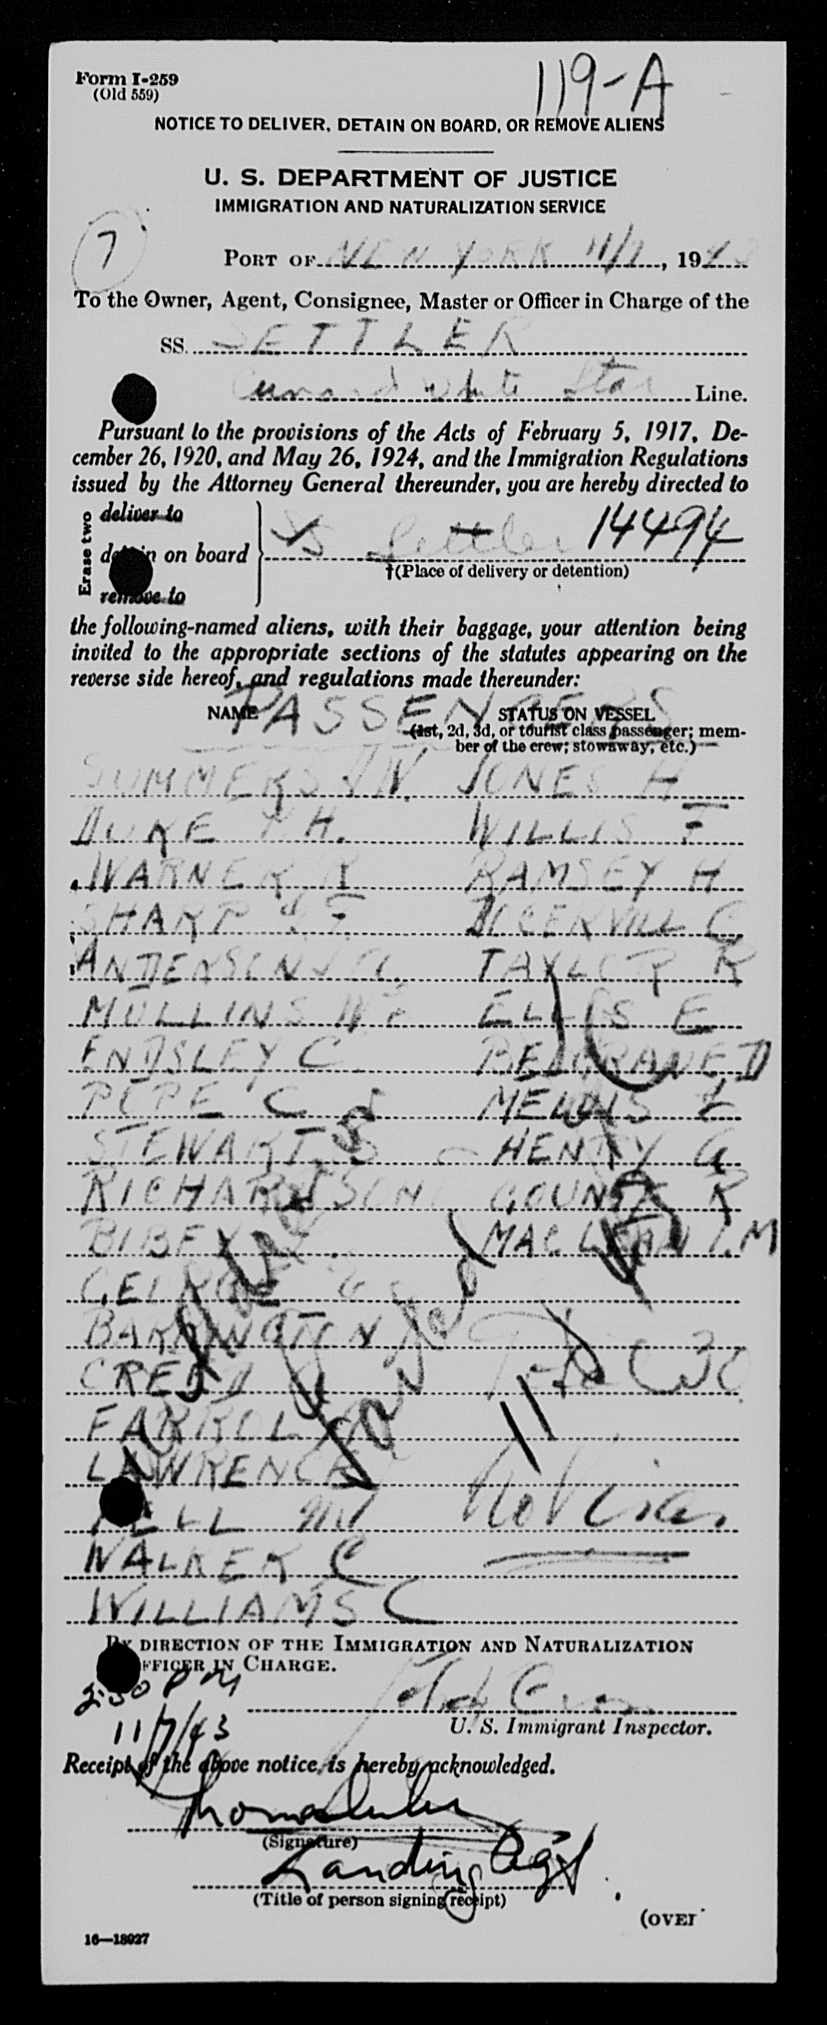 Form I-259
(Old 559)
119-A
NOTICE TO DELIVER, DETAIN ON BOARD, OR REMOVE ALIENS
U. S. DEPARTMENT OF JUSTICE
IMMIGRATION AND NATURALIZATION SERVICE
7
PORT OF NEW YORK 11/7, 1943
To the Owner, Agent, Consignee, Master or Officer in Charge of the
SS. SETTLER
Cunard White Star Line.
Pursuant to the provisions of the Acts of February 5, 1917, De-
cember 26, 1920, and May 26, 1924, and the Immigration Regulations
issued by the Attorney General thereunder, you are hereby directed to
Erase two
deliver to
detain on board SS Settler 14494
†(Place of delivery or detention)
remove to
the following-named aliens, with their baggage, your attention being
invited to the appropriate sections of the statutes appearing on the
reverse side hereof, and regulations made thereunder:
PASSENGERS
NAME STATUS ON VESSEL
(1st, 2d, 3d, or tourist class passenger; mem-
ber of the crew; stowaway, etc.)
SUMMERS J N JONES H
DUKE H. WILLIS F
WARNER R RAMSEY H
SHARP F C
ANDERSON J TAYLOR R
MULLINS W F ELLIS E
ENDSLEY C BELGRAVE D
POPE C E
STEWART S HENRY G
RICHARDSON R
BIBEY MACLEAN I.M
GEORGE G
BARRINGTON N
CREED
FARROL
LAWRENCE
30
M
No Visas
WALKER C
WILLIAMS C
Sailed
11
BY DIRECTION OF THE IMMIGRATION AND NATURALIZATION
OFFICER IN CHARGE.
2:30 PM
11/7/43
U. S. Immigrant Inspector.
Receipt of the above notice is hereby acknowledged.
(Signature)
Landing Agt.
(Title of person signing receipt)
(OVER
16—18027